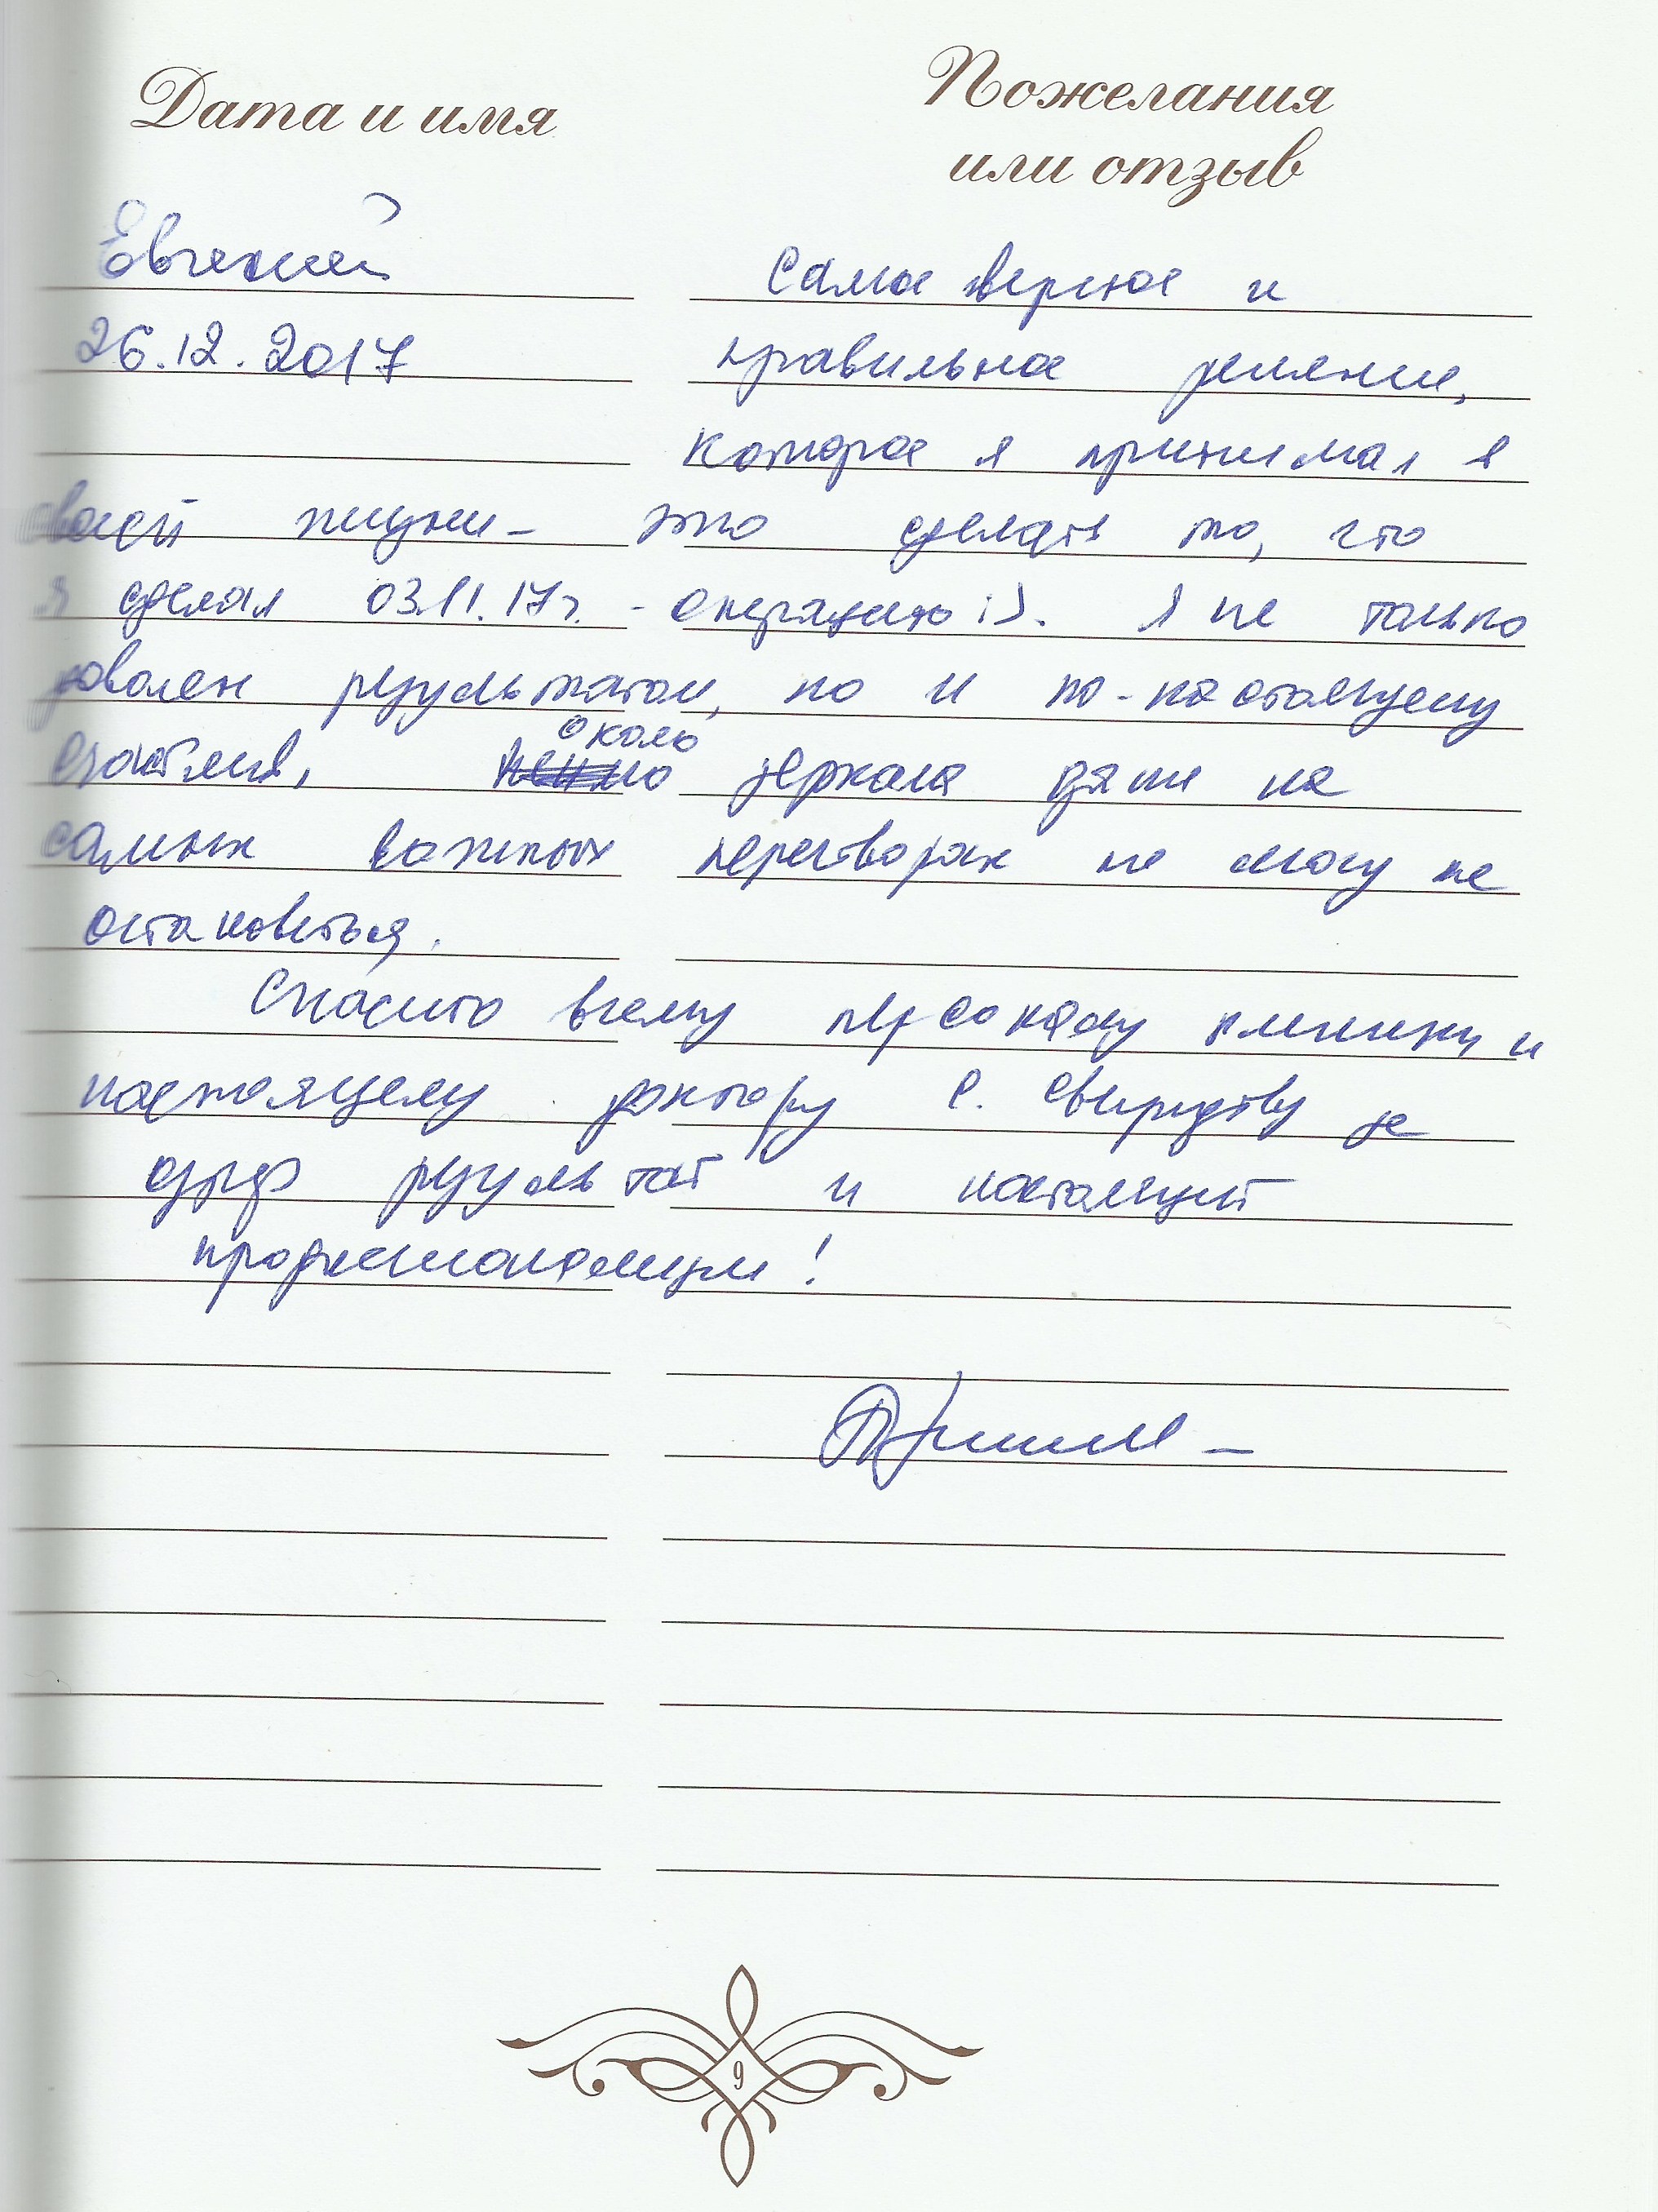 Дата и имя
Пожелания
или отзыв
Евгений
26.12.2017
Самое верное и
правильное решение,
которое я принимал в
своей жизни - это сделать то, что
я сделал 03.11.17г. - операцию :). Я не только
доволен результатом, но и по-настоящему
счастлив, около зеркала даже на
самых важных переговорах не могу не
остановиться.
Спасибо всему персоналу клиники и
настоящему доктору С. Свиридову за
результат и настоящий
профессионализм!
9